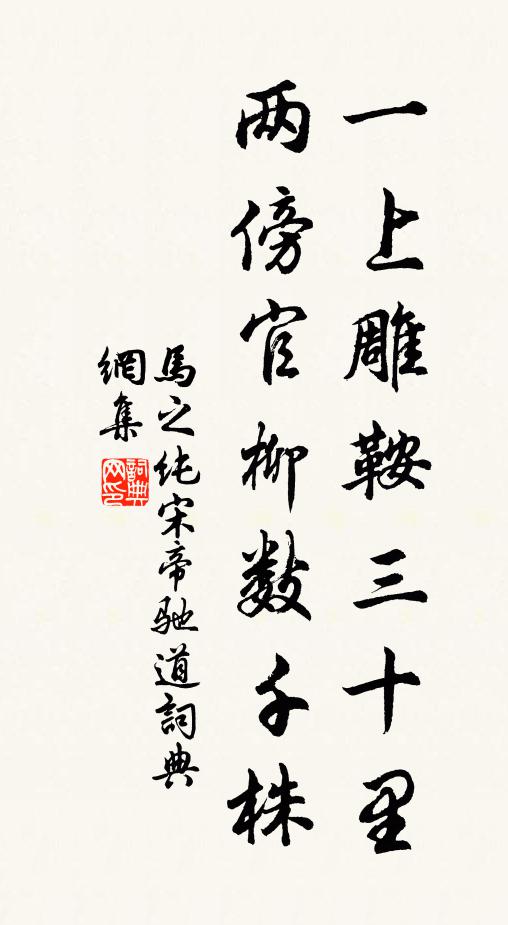 一上雕鞍三十里
两傍官柳数千株
馬之纯宋帝馳道詞典
網集
詞典网印